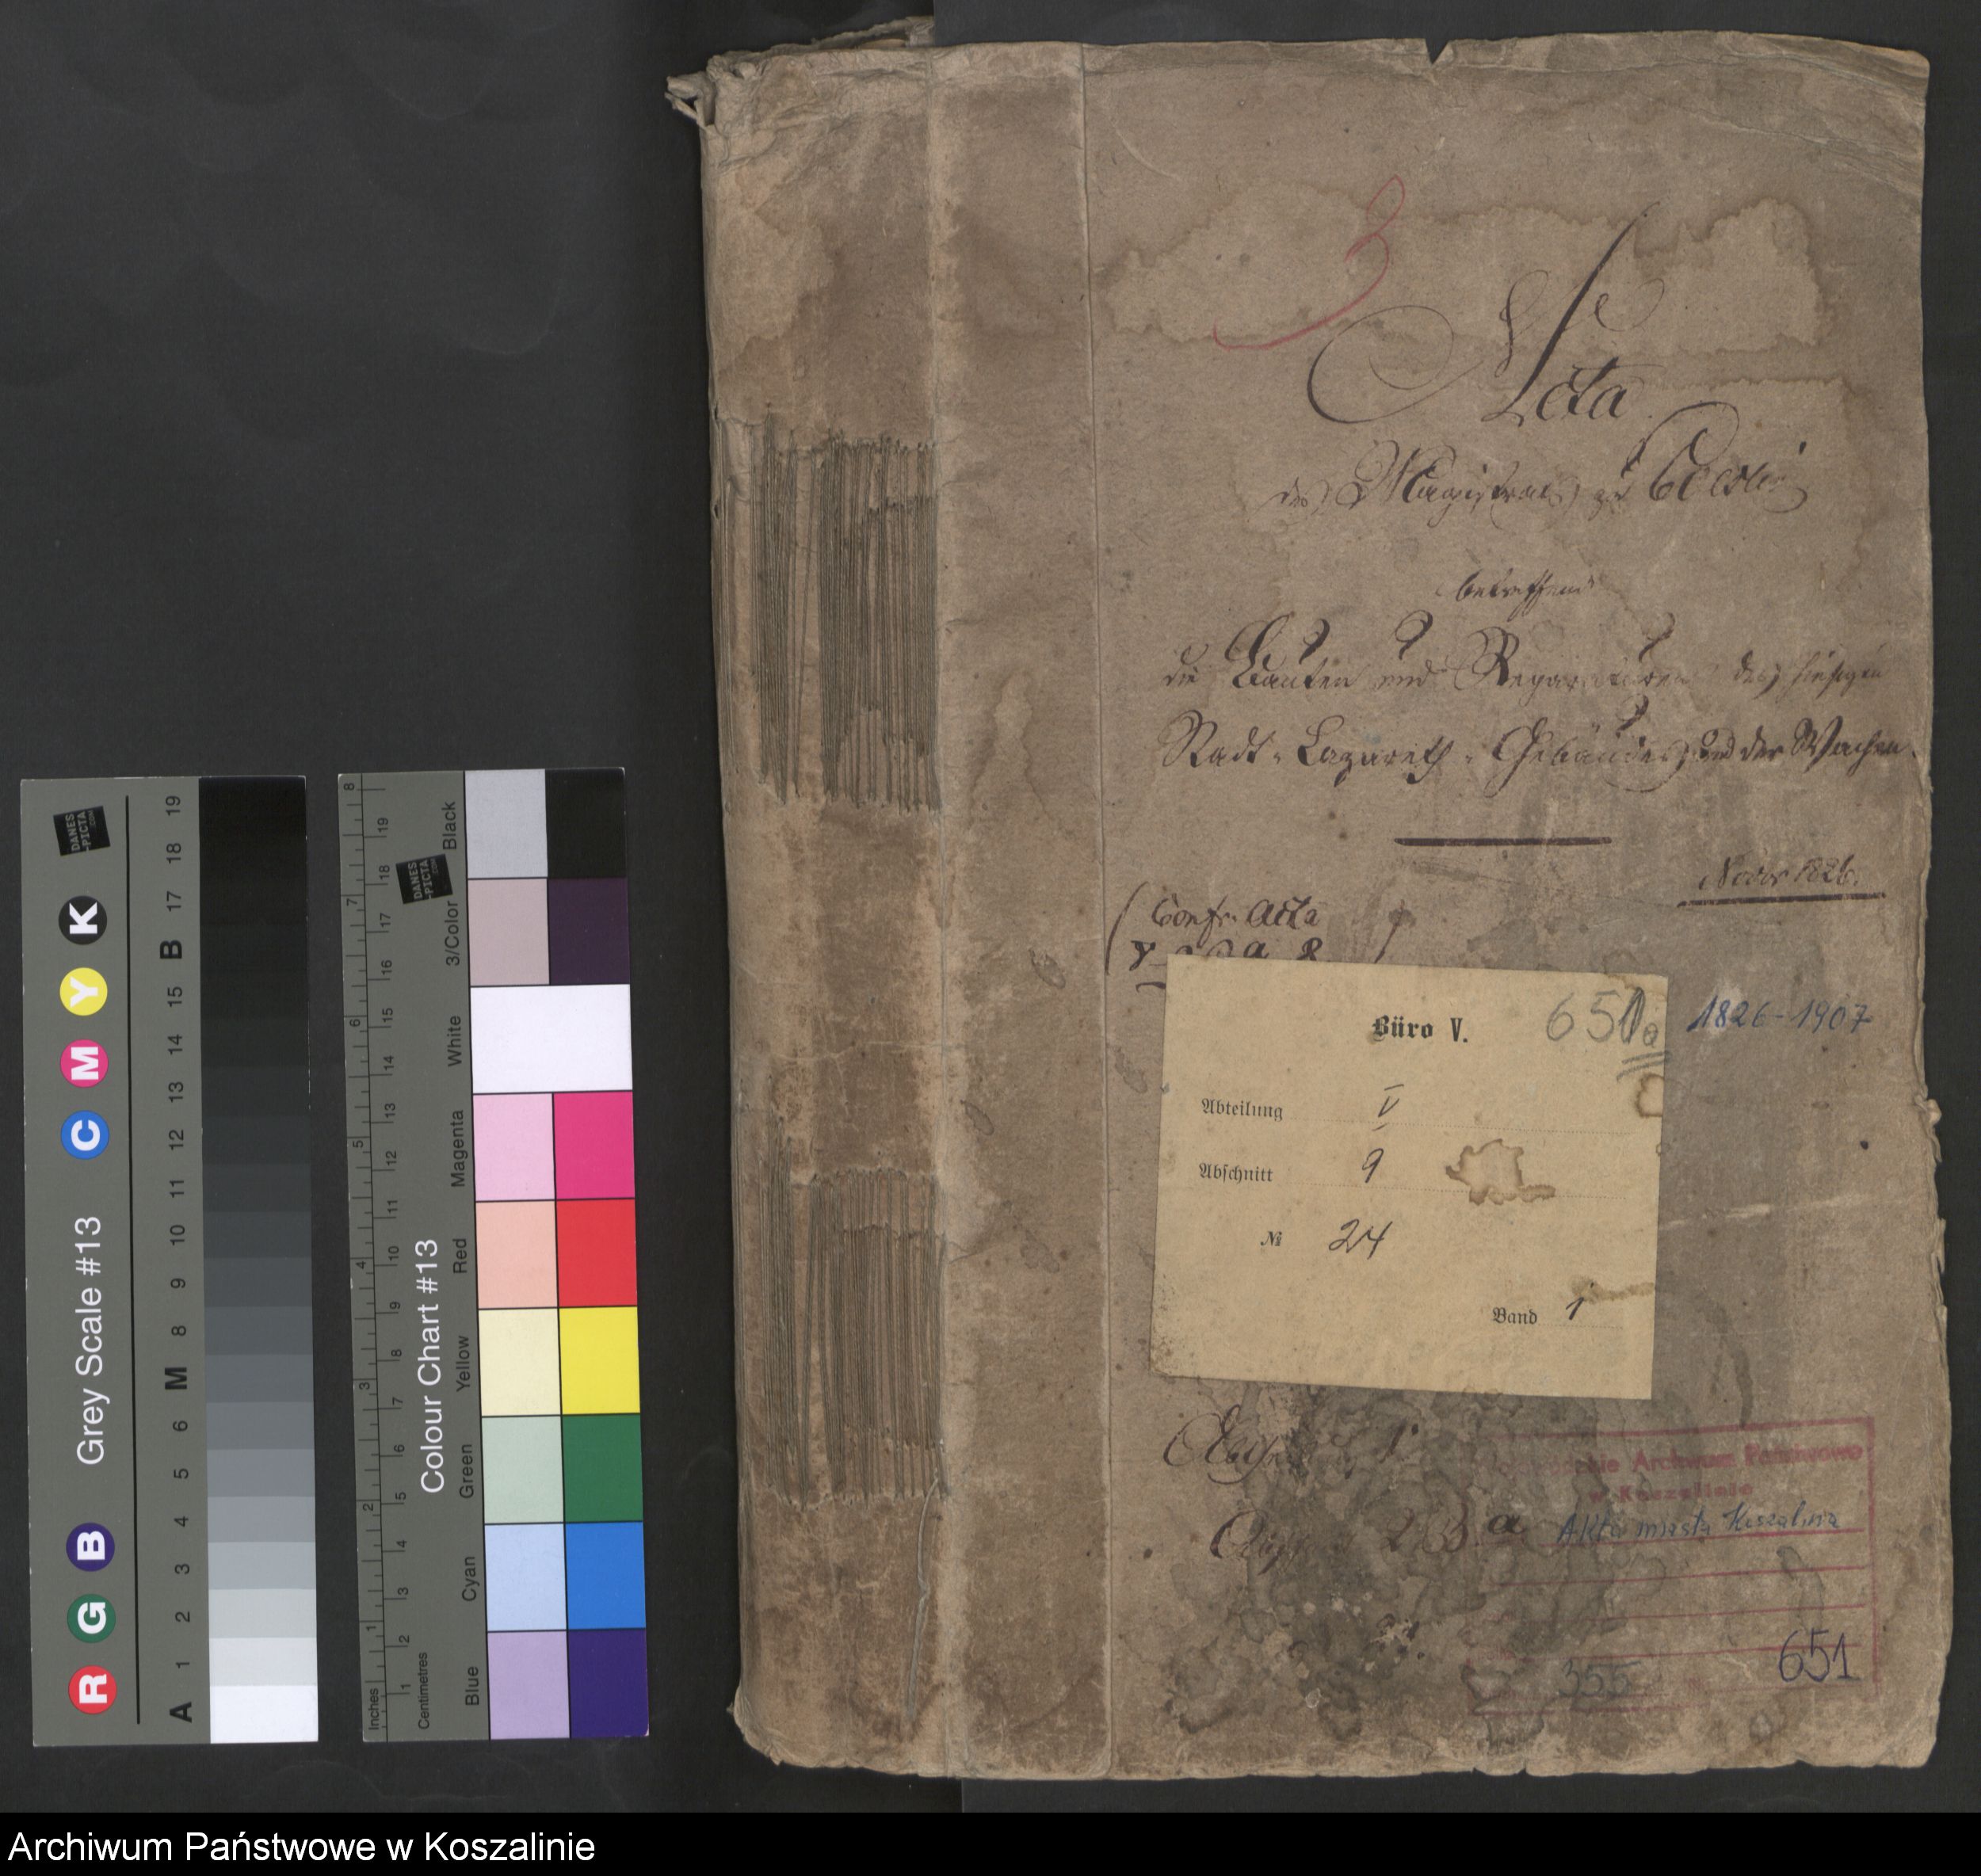 3
Acta
des Magistrats zu Cöslin
betreffend
die Bauten und Reparaturen des hiesigen
Stadt-Lazareth-Gebäudes und der Wachen.
Novbr 1826.
(Confr. Acta
Büro V. 651a
1826-1907
Abteilung V
Abschnitt 9
№ 24
Band 1
Archiwum Państwowe
w Koszalinie
a Akta miasta Koszalina
355 651
Grey Scale #13
R G B C M Y K
A 1 2 3 4 5 6 M 8 9 10 11 12 13 14 15 B 17 18 19
DANES
-PICTA
.COM
Colour Chart #13
Inches 1 2 3 4 5 6 7 8
Centimetres 1 2 3 4 5 6 7 8 9 10 11 12 13 14 15 16 17 18 19
DANES
-PICTA
.COM
Blue Cyan Green Yellow Red Magenta White 3/Color Black
Archiwum Państwowe w Koszalinie